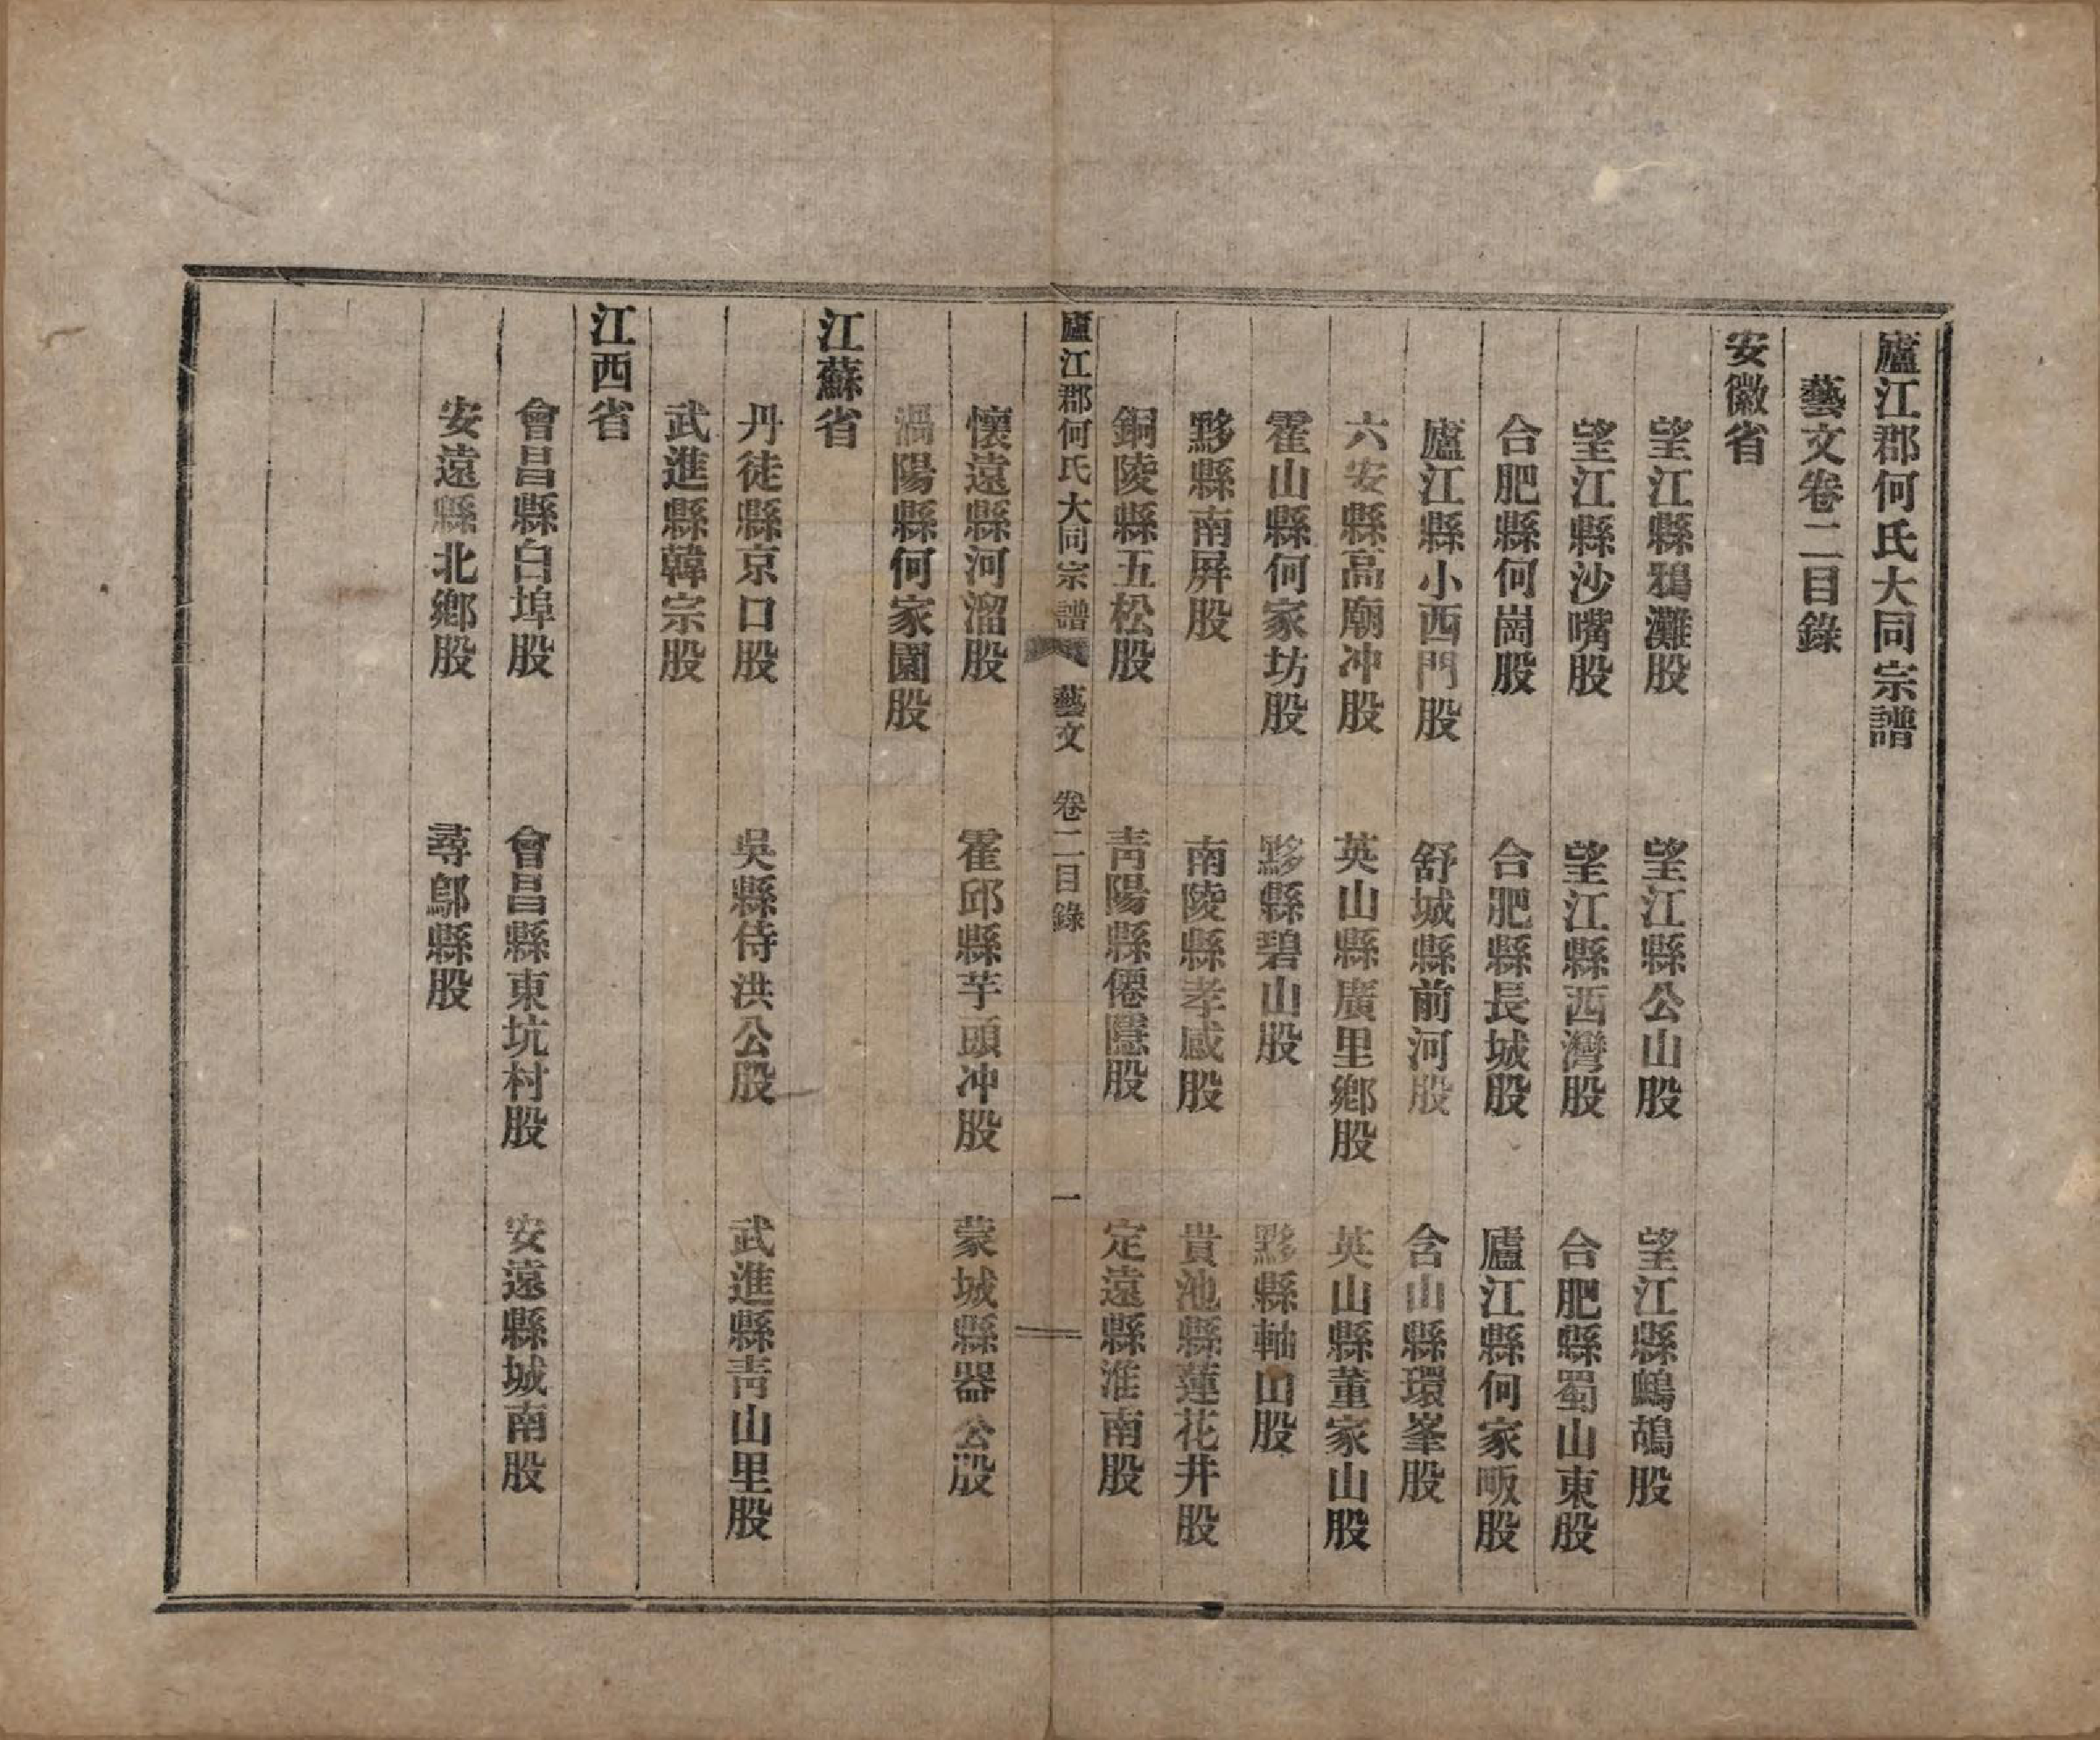 廬江郡何氏大同宗譜
藝文卷二目錄
安徽省
望江縣鴉灘股　望江縣公山股　望江縣鷓鴣股
望江縣沙嘴股　望江縣西灣股　合肥縣蜀山東股
合肥縣何崗股　合肥縣長城股　廬江縣何家畈股
廬江縣小西門股　舒城縣前河股　含山縣環峯股
六安縣高廟冲股　英山縣廣里鄉股　英山縣董家山股
霍山縣何家坊股　黟縣碧山股　黟縣軸山股
黟縣南屛股　南陵縣孝感股　貴池縣蓮花井股
銅陵縣五松股　靑陽縣僊隱股　定遠縣淮南股
廬江郡何氏大同宗譜　藝文　卷二目錄　一
懷遠縣河溜股　霍邱縣芋頭冲股　蒙城縣器公股
渦陽縣何家園股
江蘇省
丹徒縣京口股　吳縣侍洪公股　武進縣靑山里股
武進縣韓宗股
江西省
會昌縣白埠股　會昌縣東坑村股　安遠縣城南股
安遠縣北鄉股　尋鄔縣股